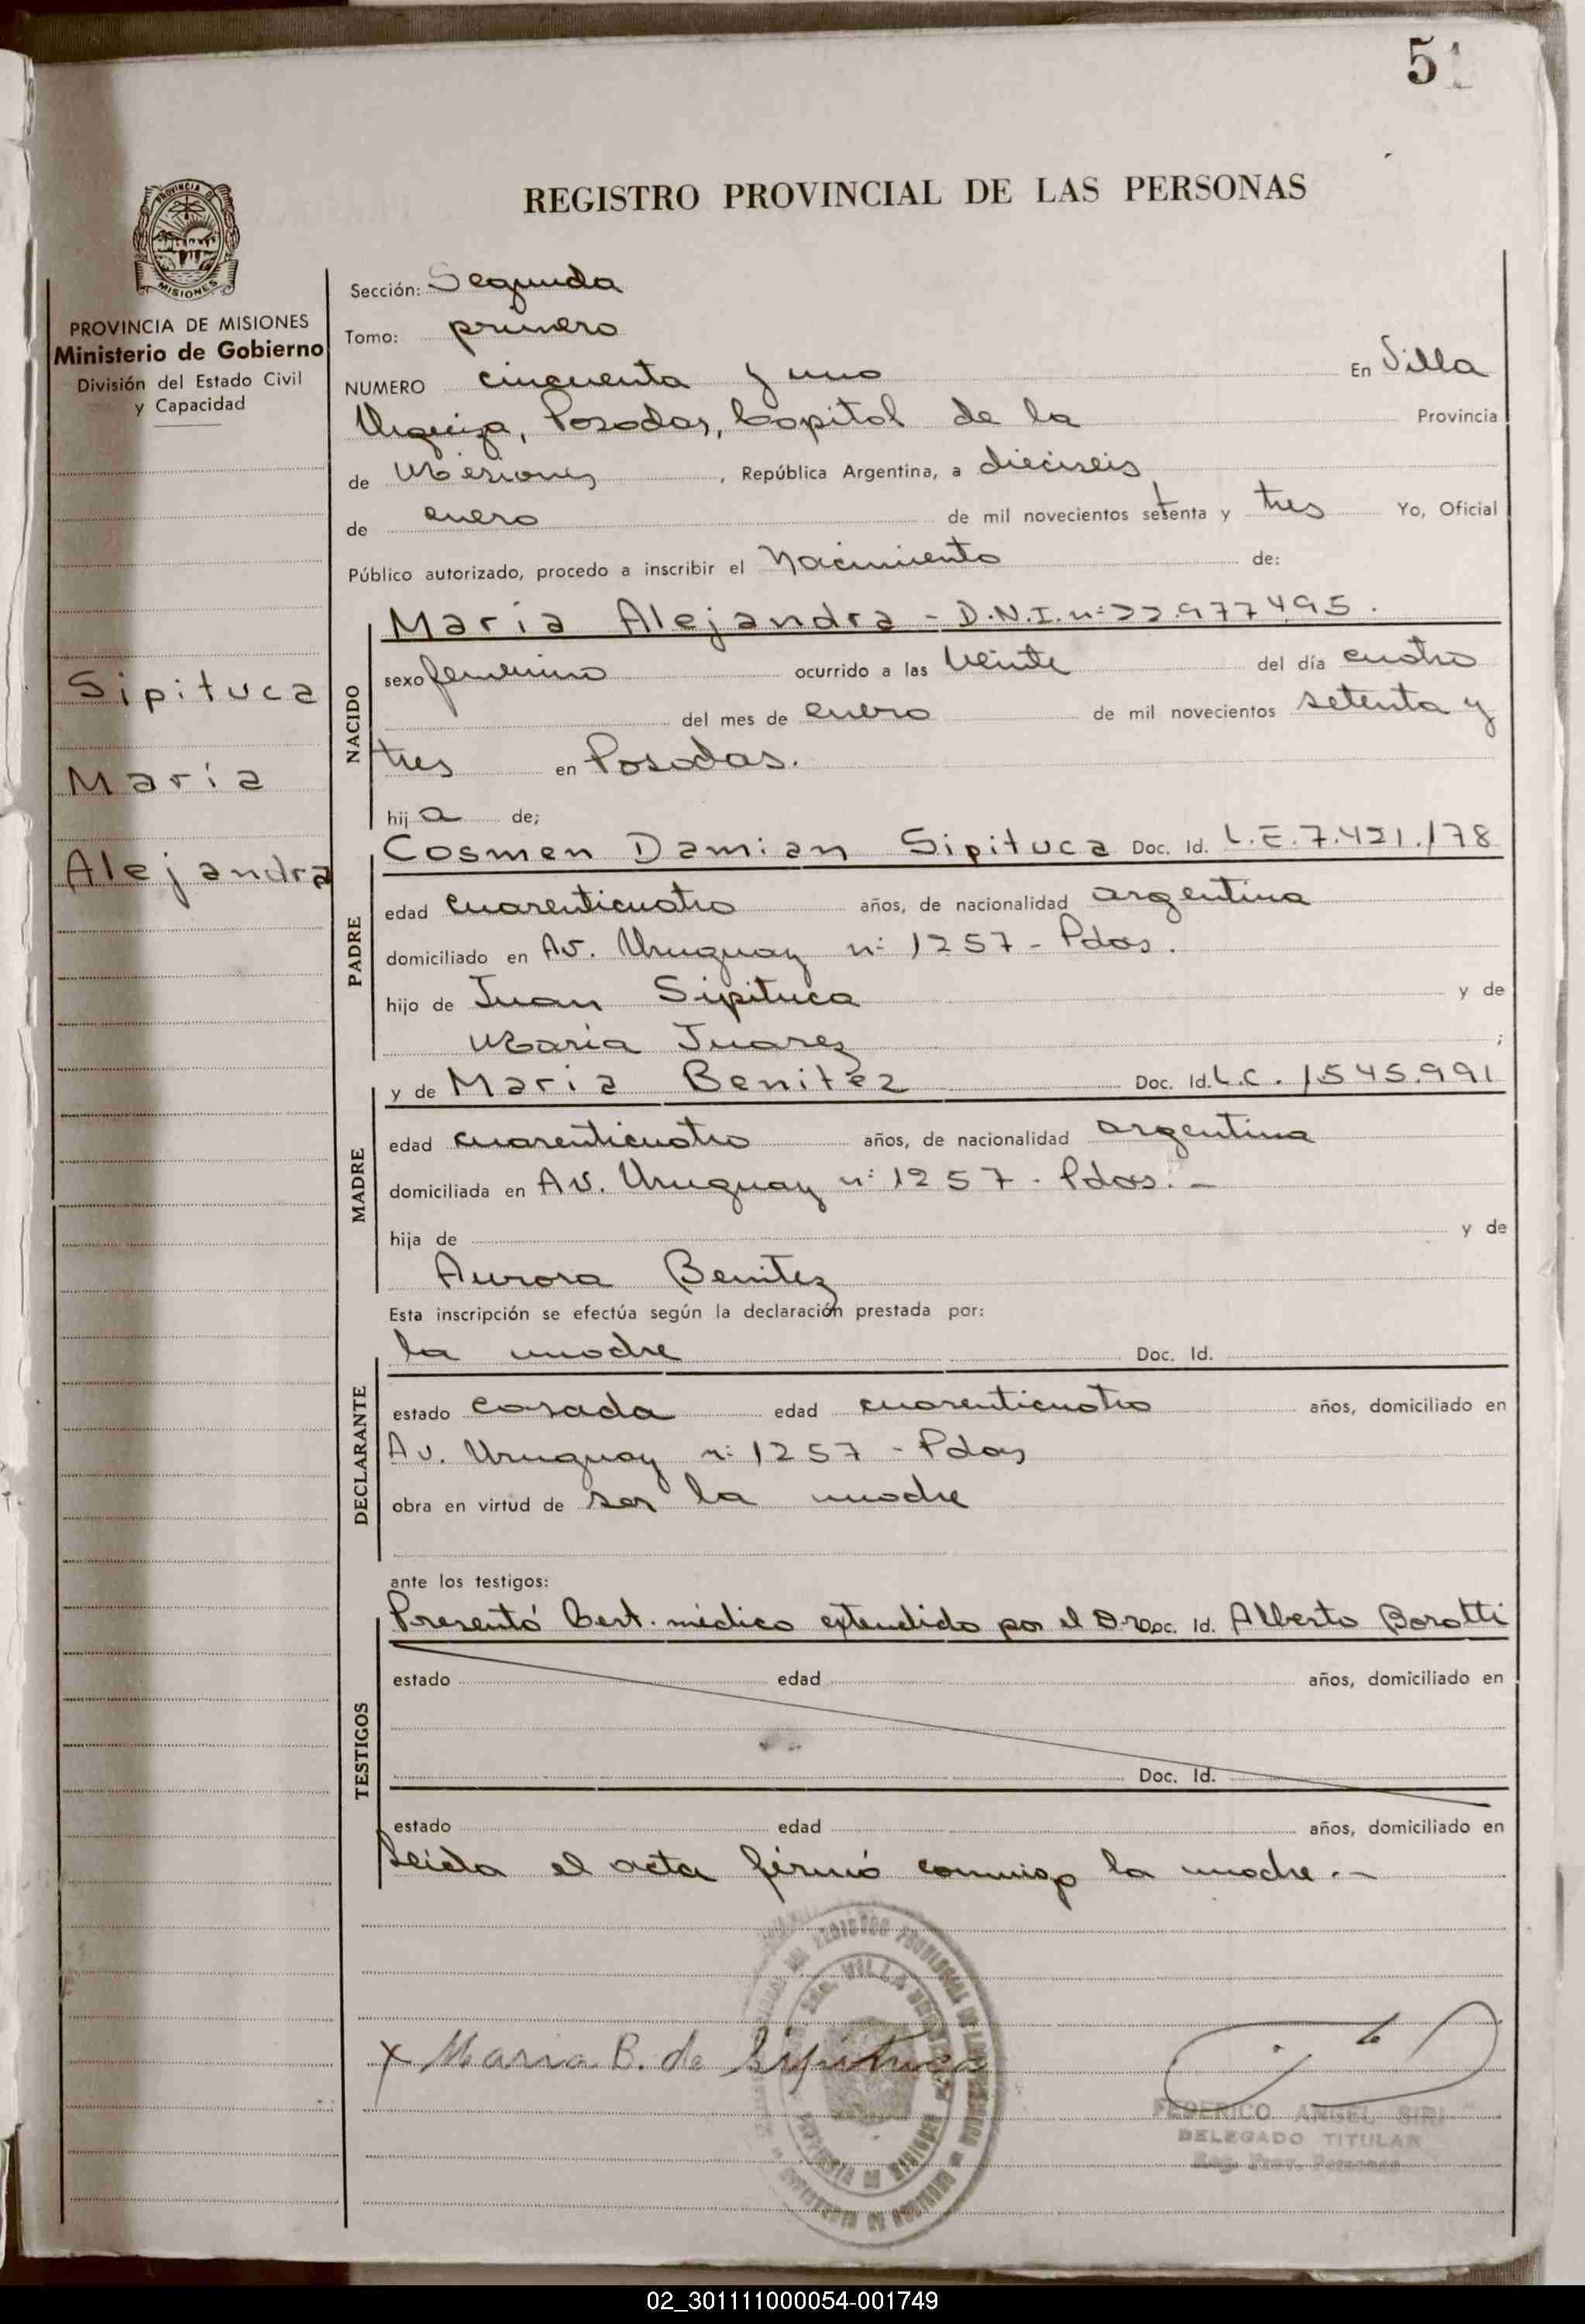 51
PROVINCIA DE
MISIONES
PROVINCIA DE MISIONES
Ministerio de Gobierno
División del Estado Civil
y Capacidad
Sipituca
María
Alejandra
REGISTRO PROVINCIAL DE LAS PERSONAS
Sección: Segunda
Tomo: primero
NUMERO cincuenta y uno En Villa
Urquiza, Posadas, Capital de la Provincia
de Misiones, República Argentina, a dieciseis
de enero de mil novecientos setenta y tres Yo, Oficial
Público autorizado, procedo a inscribir el Nacimiento de:
NACIDO
María Alejandra - D.N.I. nº 22.977.495.
sexo femenino ocurrido a las veinte del día cuatro
del mes de enero de mil novecientos setenta y
tres en Posadas.
hija de;
PADRE
Cosmen Damian Sipituca Doc. Id. L.E. 7.421.178
edad cuarenticuatro años, de nacionalidad argentina
domiciliado en Av. Uruguay nº 1257 - Pdas.
hijo de Juan Sipituca y de
María Juarez ;
MADRE
y de María Benitez Doc. Id. L.C. 1.545.991
edad cuarenticuatro años, de nacionalidad argentina
domiciliada en Av. Uruguay nº 1257 - Pdas. -
hija de y de
Aurora Benitez
Esta inscripción se efectúa según la declaración prestada por:
DECLARANTE
la madre Doc. Id.
estado casada edad cuarenticuatro años, domiciliado en
Av. Uruguay nº 1257 - Pdas
obra en virtud de ser la madre
ante los testigos:
TESTIGOS
Presentó Cert. médico extendido por el Dr. Doc. Id. Alberto Borotti
estado edad años, domiciliado en
Doc. Id.
estado edad años, domiciliado en
Leída el acta firmó conmigo la madre. -
x Maria B. de Sipituca
FEDERICO ANGEL SIRI
DELEGADO TITULAR
Reg. Prov. Personas
02_301111000054-001749